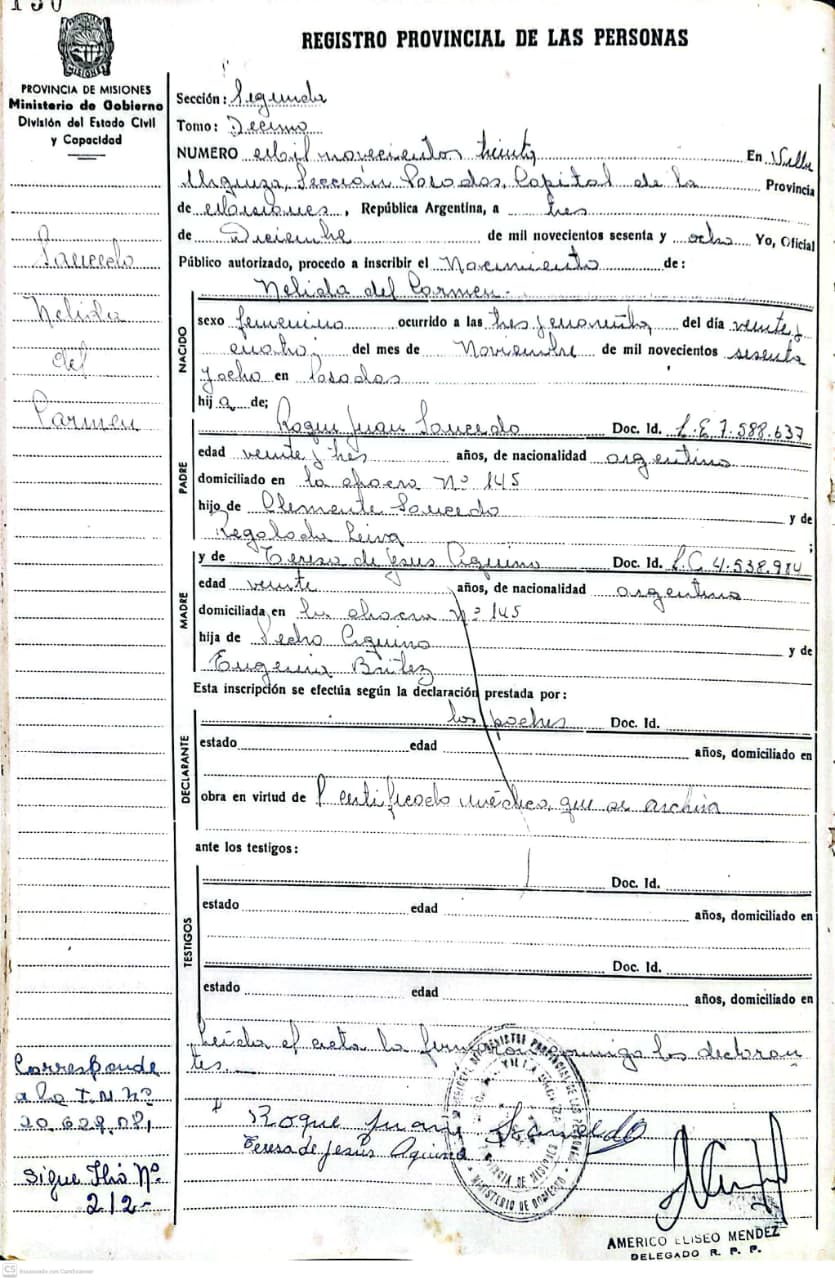 150
REGISTRO PROVINCIAL DE LAS PERSONAS
MISIONES
PROVINCIA DE MISIONES
Ministerio de Gobierno
División del Estado Civil
y Capacidad
Saucedo
Nelida
del
Carmen
Corresponde
a la I. N. Nº
20.629.081
Sigue Flio Nº
212-
Sección: Segunda
Tomo: Decimo
NUMERO Mil novecientos treinta En Villa
Urquiza, Sección Posadas, Capital de la Provincia
de Misiones, República Argentina, a tres
de Diciembre de mil novecientos sesenta y ocho Yo, Oficial
Público autorizado, procedo a inscribir el Nacimiento de:
Nelida del Carmen.-
NACIDO
sexo femenino ocurrido a las tres y cuarenta del día veinte y
cuatro, del mes de Noviembre de mil novecientos sesenta
y ocho en Posadas
hij a de;
PADRE
Roque Juan Saucedo Doc. Id. L.E 7.588.637
edad veinte y tres años, de nacionalidad argentino
domiciliado en la chacra Nº 145
hijo de Clemente Saucedo y de
Regalada Leiva ;
MADRE
y de Teresa de Jesus Aquino Doc. Id. L.C 4.538.984
edad veinte años, de nacionalidad argentina
domiciliada en la chacra Nº 145
hija de Pedro Aquino y de
Eugenia Britez
Esta inscripción se efectúa según la declaración prestada por:
DECLARANTE
los padres Doc. Id.
estado edad años, domiciliado en
obra en virtud de certificado médico, que se archiva
ante los testigos:
TESTIGOS
Doc. Id.
estado edad años, domiciliado en
Doc. Id.
estado edad años, domiciliado en
Leída el acta la firmaron conmigo los declaran
tes.
Roque Juan Saucedo
Teresa de Jesús Aquino
PROVINCIA DE MISIONES
MINISTERIO DE GOBIERNO
AMERICO ELISEO MENDEZ
DELEGADO R. P. P.
CS Escaneado con CamScanner